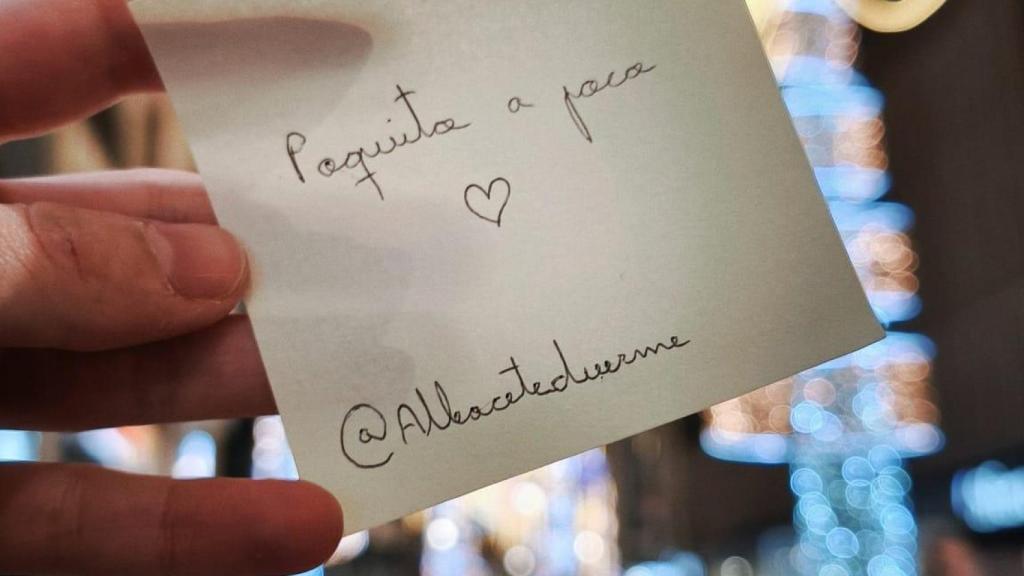 Poquito a poco
♡
@Albaceteduerme